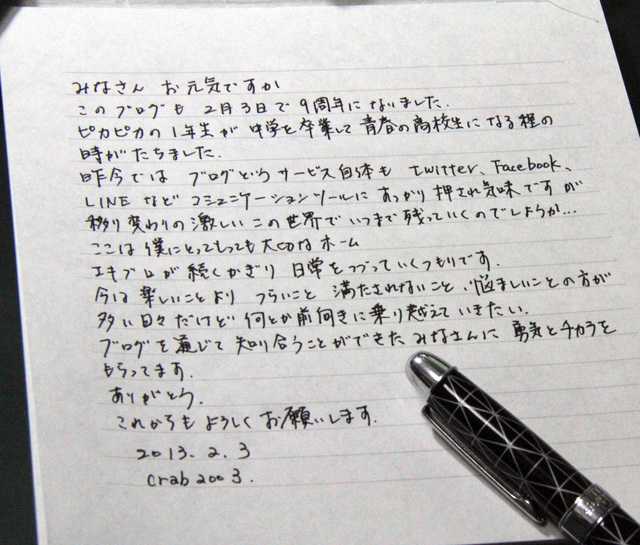 みなさん お元気ですか
このブログも 2月3日で9周年になりました.
ピカピカの1年生が 中学を卒業して 青春の高校生になる程の
時がたちました.
昨今では ブログというサービス自体も twitter、Facebook、
LINEなど コミュニケーションツールに あっかり押され気味ですが
移り変わりの激しい この世界で いつまで残っていくのでしょうか...
ここは僕にとってもっても大切なホーム
エキブロが続くかぎり 日常をつづっていくつもりです.
今は楽しいことより つらいこと 満たされないこと、悩ましいことの方が
多い日々だけど 何とか前向きに乗り越えていきたい.
ブログを通じて 知り合うことができた みなさんに 勇気とチカラを
もらってます.
ありがとう.
これからもよろしくお願いします.
2013.2.3
crab2003.